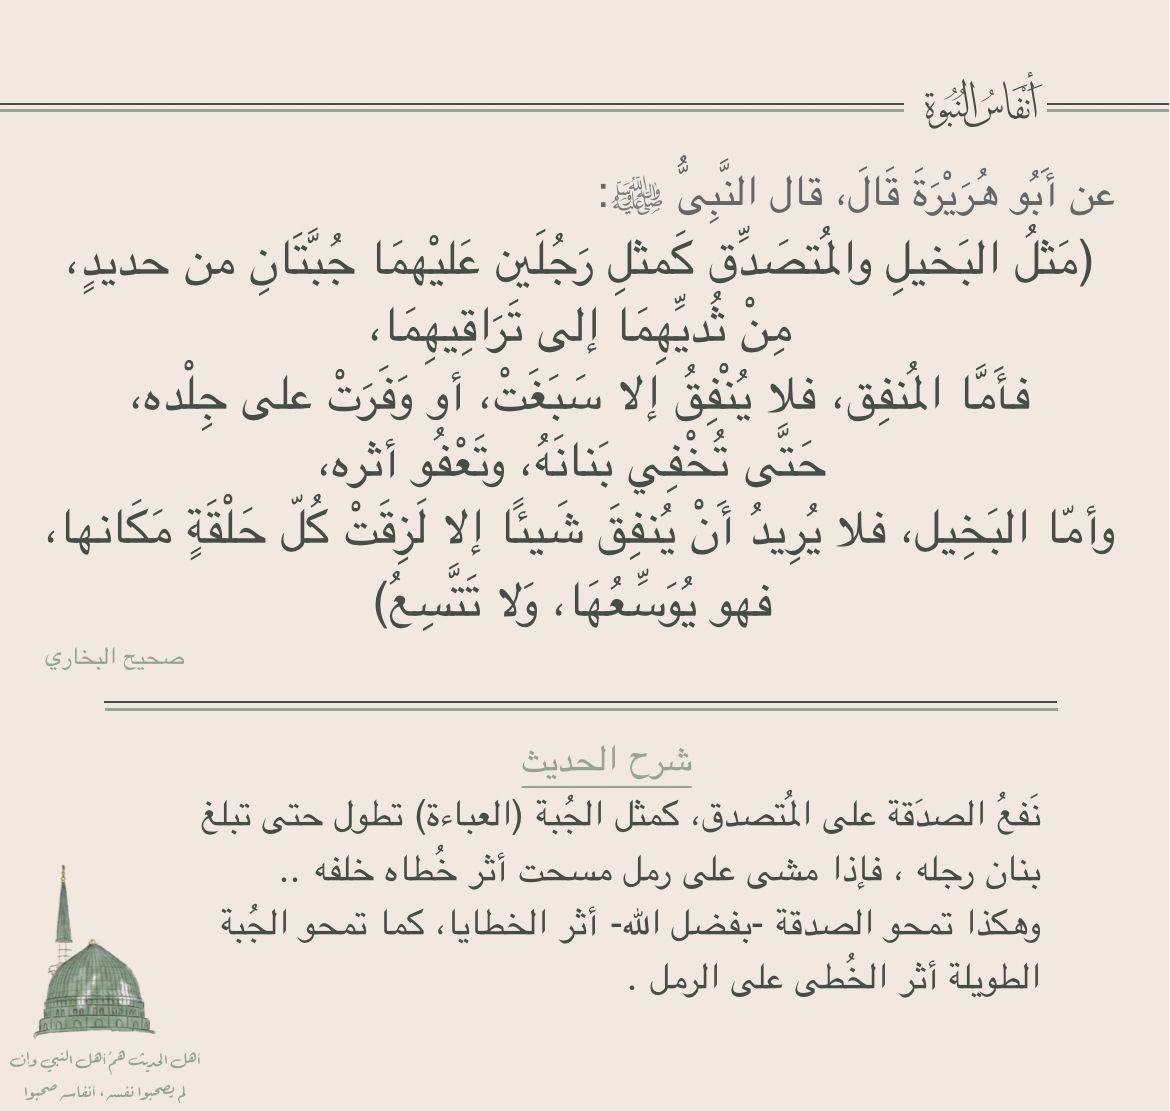 أَنْفَاسُ النُّبُوة
عن أَبُو هُرَيْرَةَ قَالَ، قال النَّبِىُّ ﷺ:
(مَثلُ البَخيلِ والمُتصَدِّق كَمثلِ رَجُلَين عَليْهمَا جُبَّتَانِ من حديدٍ،
مِنْ ثُديِّهِمَا إلى تَرَاقِيهِمَا،
فأَمَّا المُنفِق، فلا يُنْفِقُ إلا سَبَغَتْ، أو وَفَرَتْ على جِلْده،
حَتَّى تُخْفِي بَنانَهُ، وتَعْفُو أثره،
وأمّا البَخِيل، فلا يُرِيدُ أَنْ يُنفِقَ شَيئًا إلا لَزِقَتْ كُلّ حَلْقَةٍ مَكَانها،
فهو يُوَسِّعُهَا، وَلا تَتَّسِعُ)
صحيح البخاري
شرح الحديث
نَفعُ الصدَقة على المُتصدق، كمثل الجُبة (العباءة) تطول حتى تبلغ
بنان رجله ، فإذا مشى على رمل مسحت أثر خُطاه خلفه ..
وهكذا تمحو الصدقة -بفضل الله- أثر الخطايا، كما تمحو الجُبة
الطويلة أثر الخُطى على الرمل .
أهل الحديث همُ أهل النبي وإن
لم يصحبوا نفسه، أنفاسه صحبوا